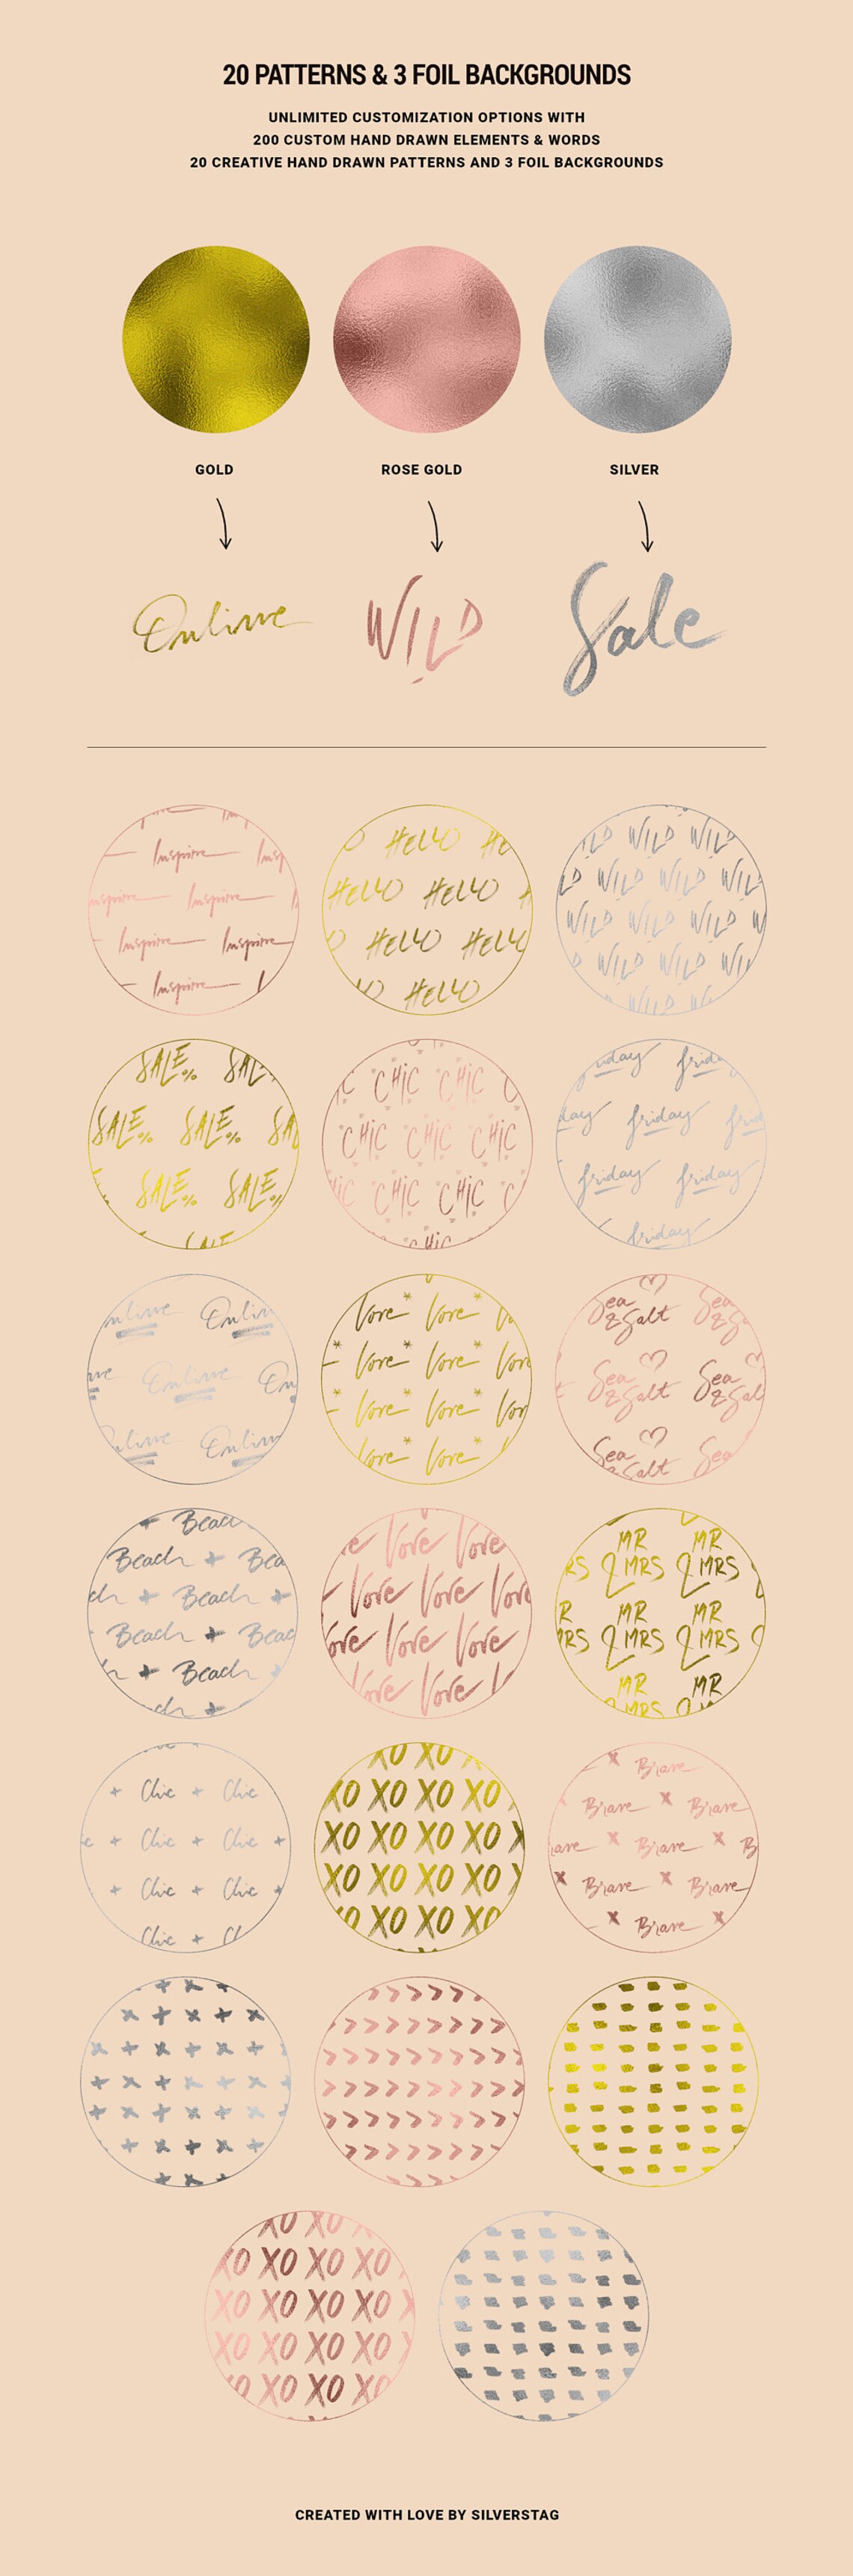 20 PATTERNS & 3 FOIL BACKGROUNDS
UNLIMITED CUSTOMIZATION OPTIONS WITH
200 CUSTOM HAND DRAWN ELEMENTS & WORDS
20 CREATIVE HAND DRAWN PATTERNS AND 3 FOIL BACKGROUNDS
GOLD
ROSE GOLD
SILVER
Online
WILD
Sale
Inspire
Inspire
Inspire Inspire
Inspire
HELLO
HELLO HELLO
HELLO
HELLO
WILD WILD
WILD WILD
WILD WILD WILD
WILD WILD
WILD
SALE%
SALE% SALE%
SALE% SALE%
CHIC CHIC
CHIC CHIC CHIC
CHIC CHIC
friday
friday friday
friday
Online
Online
Online
Love Love
Love Love
Love Love
Love Love
Sea
& Salt
Sea
& Salt
Sea
& Salt
Beach
Beach +
+ Beach +
Beach +
+ Beach
Love Love
Love Love
Love Love Love
Love Love
MR MR
& MRS & MRS
MR MR
& MRS & MRS
MR MR
+ Chic + Chic
+ Chic + Chic +
+ Chic + Chic +
Chic +
XO XO
XO XO XO XO
XO XO XO XO
XO XO XO XO
XO XO XO
x Brave
Brave x Brave
x Brave x
x Brave x Brave
x Brave x
XO XO
XO XO XO
XO XO XO XO
XO XO XO XO
XO XO XO
CREATED WITH LOVE BY SILVERSTAG